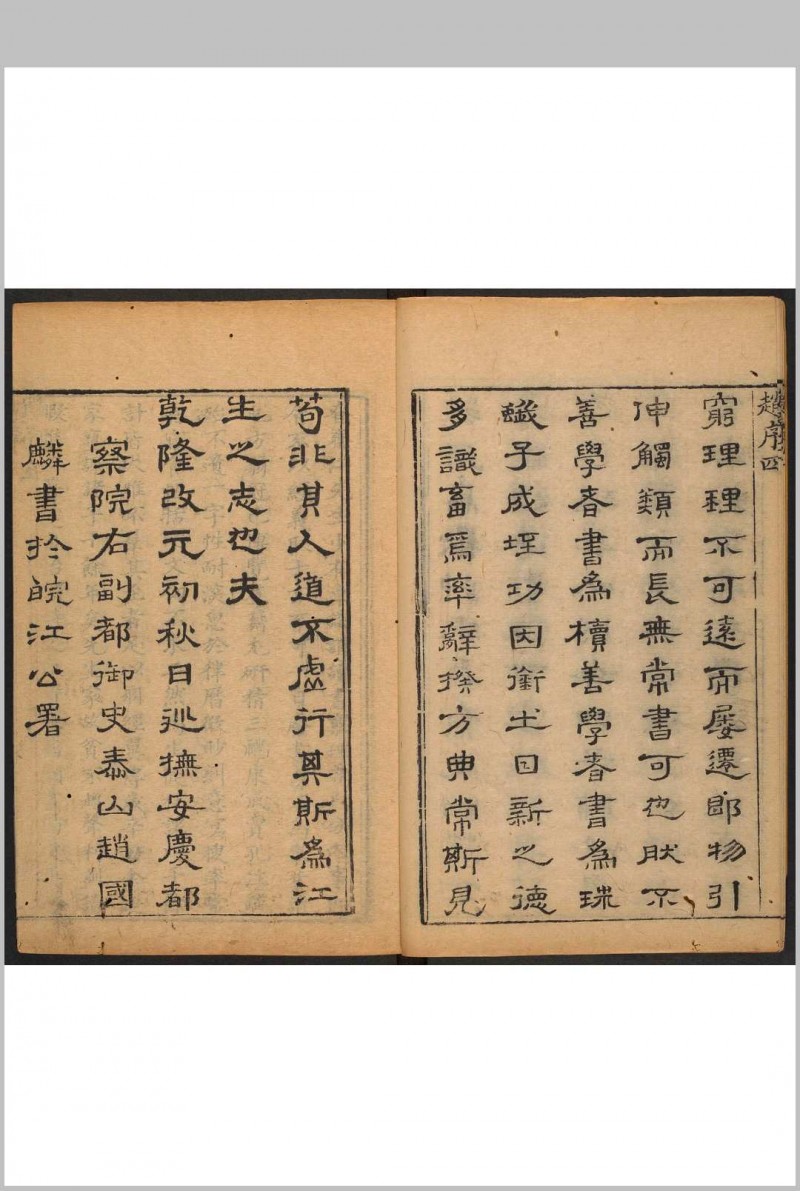 趙序 四
窮理理不可遠而屢遷即物引
伸觸類而長無常書可也肰不
善學者書為櫝善學者書為珠
蛾子成垤功因銜土日新之德
多識畜焉率辭揆方典常斯見
苟非其人道不虛行其斯為江
生之志也夫
乾隆改元初秋日巡撫安慶都
察院右副都御史泰山趙國
麟書於皖江公署